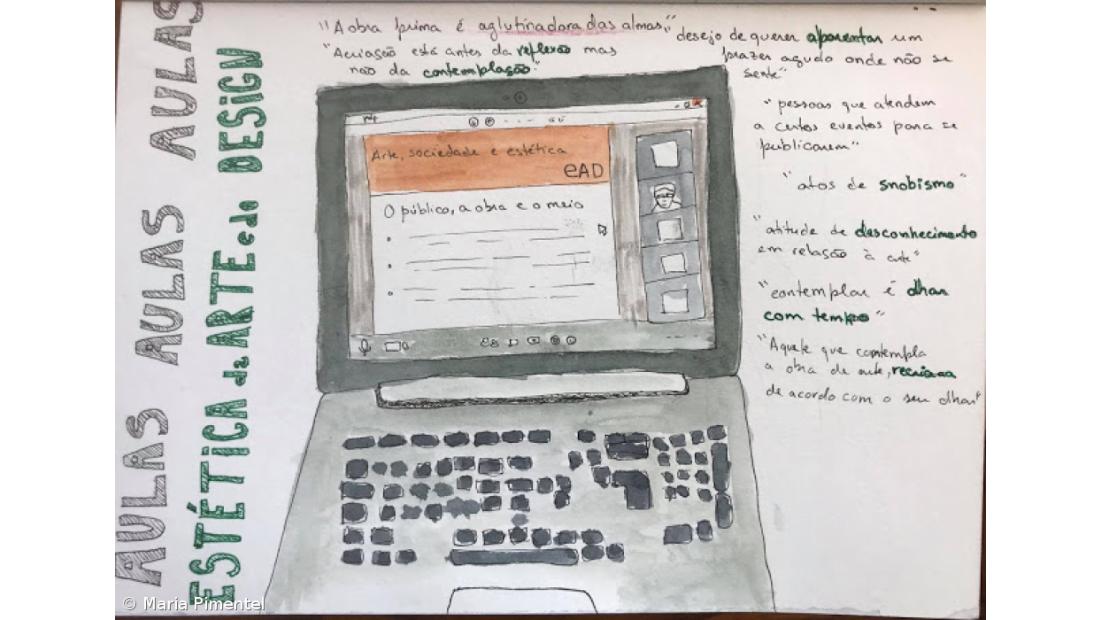 AULAS AULAS AULAS AULAS
ESTÉTICA da ARTE e do DESIGN
"A obra prima é aglutinadora das almas"
"A criação está antes da reflexão mas
não da contemplação."
"desejo de querer aparentar um
prazer agudo onde não se
sente"
"pessoas que atendem
a certos eventos para se
publicarem"
"atos de snobismo"
"atitude de desconhecimento
em relação à arte"
"contemplar é olhar
com tempo"
"Aquele que contempla
a obra de arte, recria-a
de acordo com o seu olhar"
Arte, sociedade e estética
eAD
O público, a obra e o meio
© Maria Pimentel